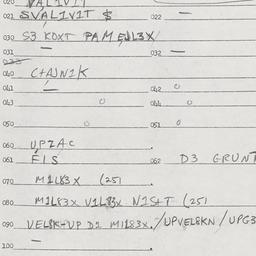 020 VAL1V1T
021 SVAL1V1T $ 022 —
030 S3 KOXT PAMEUL3X
031 — 032 —
033
040 C+AJN1K
041 — 042 o
043 o 044 o
050 o 051 o
060 UPZAC .
061 E1S 062 D3 GRUNT
070 M1L83X (251 .
080 M1L83X V1L83X N1S+T (251
090 VEL8K+UP D1 M1L83X./UPVEL8KN/UPG3
100 — .